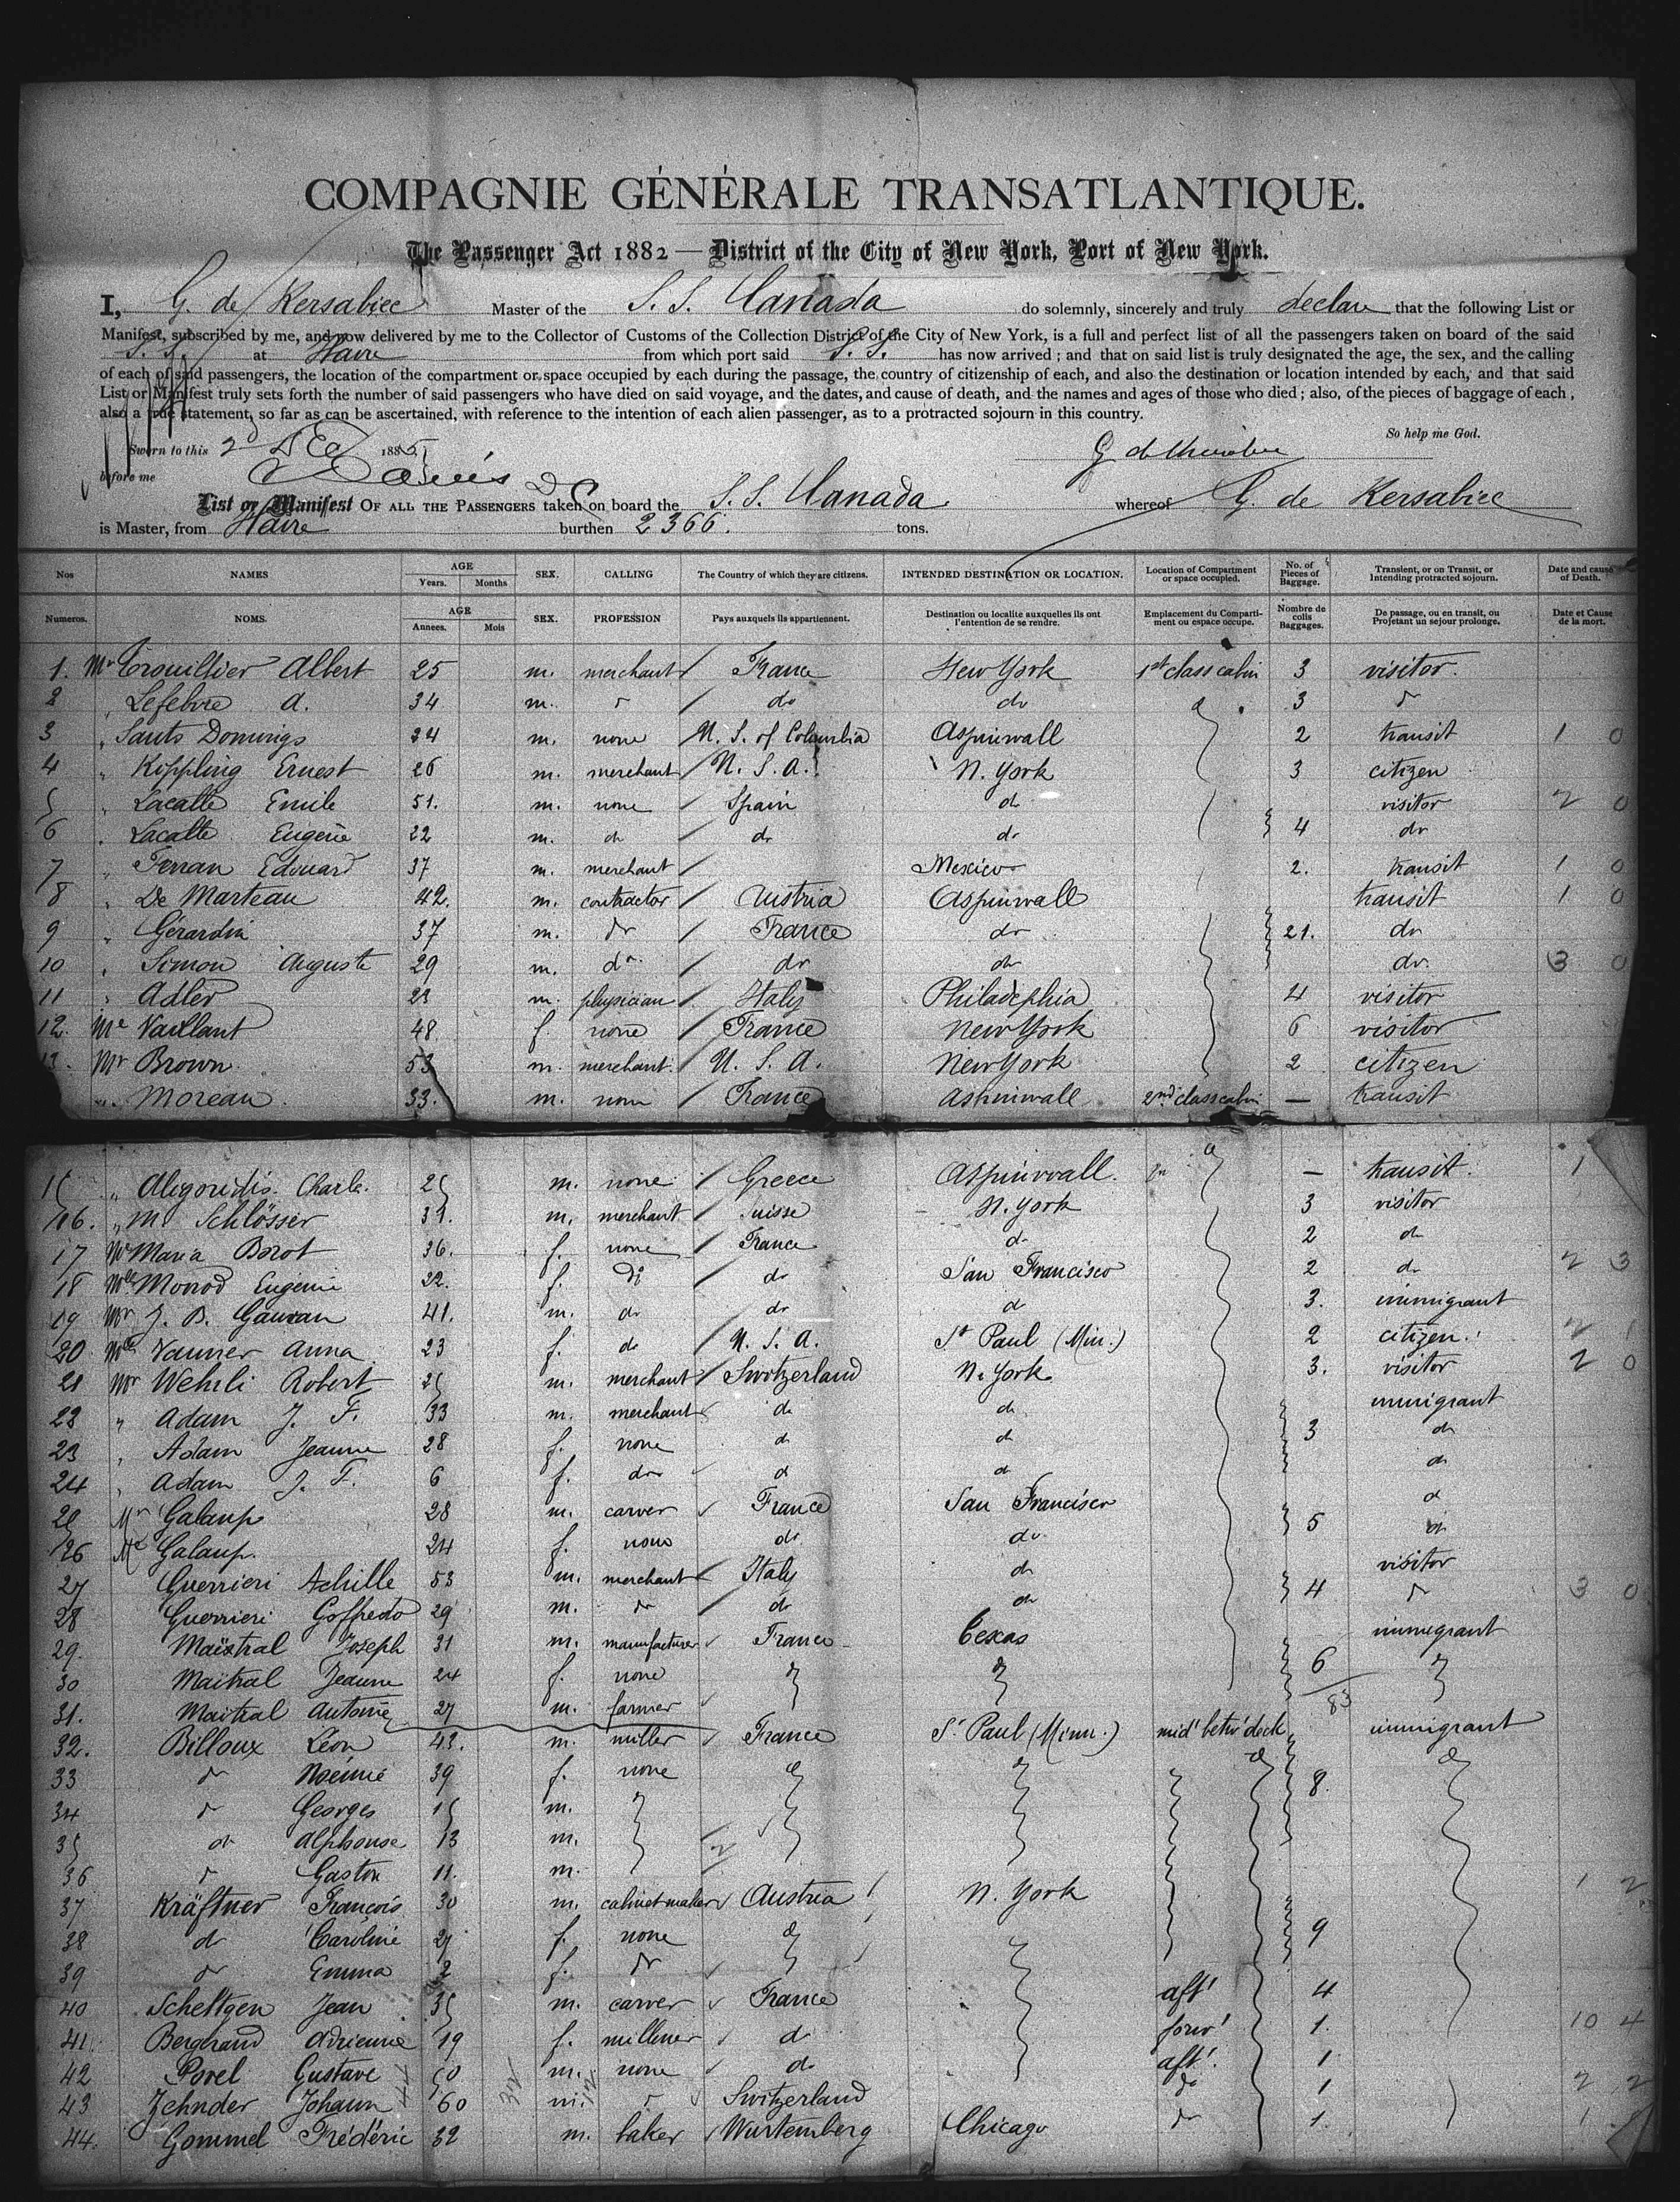 COMPAGNIE GÉNÉRALE TRANSATLANTIQUE.
The Passenger Act 1882 — District of the City of New York, Port of New York.
I, G. de Kersabiec Master of the S. S. Canada do solemnly, sincerely and truly declare that the following List or
Manifest, subscribed by me, and now delivered by me to the Collector of Customs of the Collection District of the City of New York, is a full and perfect list of all the passengers taken on board of the said
S. S. at Havre from which port said S. S. has now arrived; and that on said list is truly designated the age, the sex, and the calling
of each of said passengers, the location of the compartment or space occupied by each during the passage, the country of citizenship of each, and also the destination or location intended by each, and that said
List or Manifest truly sets forth the number of said passengers who have died on said voyage, and the dates, and cause of death, and the names and ages of those who died; also, of the pieces of baggage of each,
also a true statement, so far as can be ascertained, with reference to the intention of each alien passenger, as to a protracted sojourn in this country.
So help me God.
Sworn to this 2 188
before me
List or Manifest OF ALL THE PASSENGERS taken on board the S. S. Canada whereof G. de Kersabiec
is Master, from Havre burthen 2366. tons.
Nos NAMES AGE Years. Months SEX. CALLING The Country of which they are citizens. INTENDED DESTINATION OR LOCATION. Location of Compartment or space occupied. No. of Pieces of Baggage. Transient, or on Transit, or Intending protracted sojourn. Date and cause of Death.
Numeros. NOMS. AGE Annees. Mois SEX. PROFESSION Pays auxquels ils appartiennent. Destination ou localite auxquelles ils ont l'entention de se rendre. Emplacement du Compartiment ou espace occupe. Nombre de colis Baggages. De passage, ou en transit, ou Projetant un sejour prolonge. Date et Cause de la mort.
1. Mr Trouillier Albert 25 m. merchant France New York 1st class cabin 3 visitor.
2 " Lefebvre A. 34 m. " do do 3 "
3 " Santo Domingo 24 m. none U. S. of Columbia Aspinwall 2 transit 1 0
4 " Kippling Ernest 26 m. merchant U. S. A. N. York 3 citizen
5 " Lacalle Emile 51. m. none Spain do visitor 2 0
6 " Lacalle Eugène 22 m. do do do 4 do
7 " Ferran Edouard 37 m. merchant Mexico 2. transit 1 0
8 " De Marteau 42. m. contractor Austria Aspinwall transit 1 0
9 " Gérardin 37 m. do France do 21. do
10 " Simon Auguste 29 m. do do do do. 3 0
11 " Adler 23 m. physician Italy Philadephia 4 visitor
12. Me Vaillant 48. f. none France New York 6 visitor
13. Mr Brown 53 m. merchant. U. S. A. New York 2 citizen
" Moreau. 33. m. none France Aspinwall 2nd class cabin — transit
15 " Aligoridis Charle. 25 m. none Greece Aspinwall. do — transit. 1
16. " M. Schlösser 31. m. merchant Suisse N. York 3 visitor
17 Me Maria Borot 36. f. none France do 2 do
18 Mlle Monod Eugénie 22. f. do do San Francisco 2 do 2 3
19 Mr J. B. Gauzan 41. m. do do do 3. immigrant
20 Mlle Vanner Anna 23 f. do U. S. A. St Paul (Min.) 2 citizen. 2 1
21 Mr Wehrli Robert 25 m. merchant Switzerland N. York 3. visitor 2 0
22 " Adam J. F. 33 m. merchant do do immigrant
23 " Adam Jeanne 28 f. none do do 3 do
24 " Adam J. F. 6 f. do do do do
25 Mr Galaup 28 m. carver France San Francisco do
26 Me Galaup. 24 f. none do do 5 do
27 Guerrieri Achille 53 m. merchant Italy do visitor
28 Guerrieri Goffredo 29 m. do do do 4 do 3 0
29. Maistral Joseph 31 m. manufacturer France Texas immigrant
30 Maitral Jeanne 24 f. none 6
31. Maitral Antoine 27 m. farmer 83
32. Billoux Léon 43. m. miller France St Paul (Minn.) mid' betw' deck immigrant
33 do Noémie 39 f. none 8.
34 do Georges 15 m.
35 do Alphonse 13 m.
36 do Gaston 11. m.
37 Kräftner François 30 m. cabinet maker Austria N. York 1 2
38 do Caroline 27 f. none 9
39 do Emma 2 f. do
40 Scheltgen Jean 35 m. carver France aft' 4
41. Bergerand Adrienne 19 f. milliner do forw' 1. 10 4
42 Porel Gustave 50 m. none do aft'. 1
43 Zehnder Johann 60 m. " Switzerland do 1 2 2
44. Gommel Frédéric 32 m. baker Wurtemberg Chicago do 1. 1